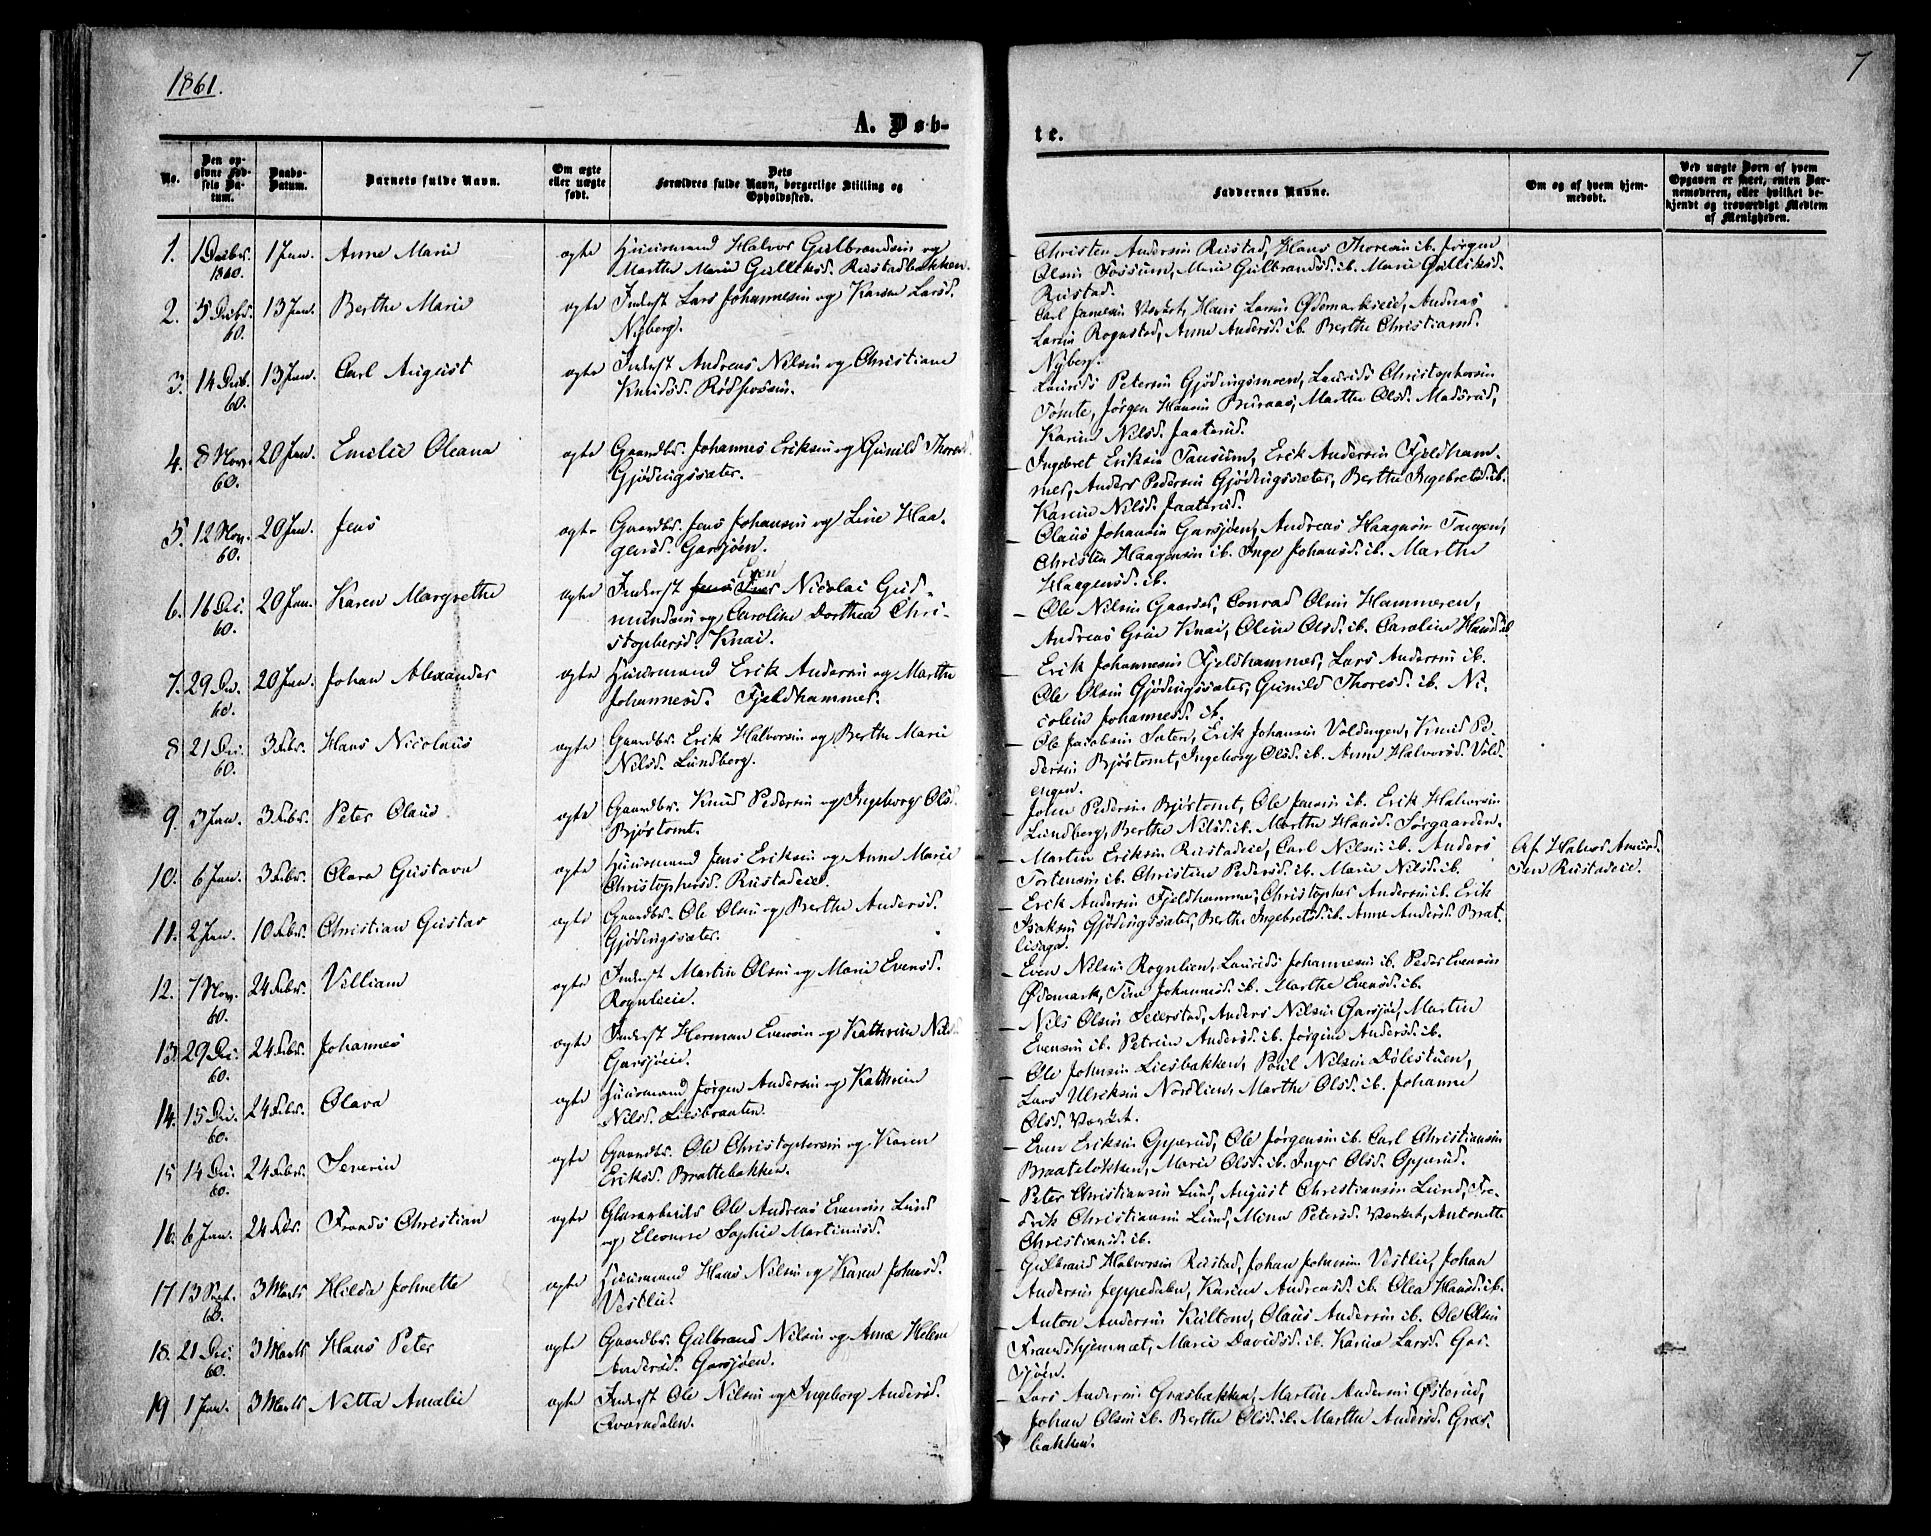 1861.
7
A. Døb-
te.
No.
Den op-
givne Fød-
sels Da-
tum.
Daabs-
Datum.
Barnets fulde Navn.
Om ægte
eller uægte
født.
Dets
Forældres fulde Navn, borgerlige Stilling og
Opholdssted.
Faddernes Navne.
Om og af hvem hjem-
medøbt.
Ved uægte Børn af hvem
Opgaven er skeet, enten Bar-
nemoderen, eller hvilket be-
kjendt og troværdigt Medlem
af Menigheden.
1. 1 Decbr. 1860. 1 Jan. Anne Marie ægte Huusmand Halvor Gulbrandsen og
Marthe Marie Gulliksd. Rustadbakken.
Christen Andersen Rustad, Hans Thoresen ib. Jørgen
Olsen Fossum, Marie Gulbrandsd. ib. Marie Gulliksd.
Rustad.
2. 5 Decbr. 60. 13 Jan. Berthe Marie ægte Inderst Lars Johannesen og Karen Larsd.
Nyberg.
Carl Jansen Værket, Hans Larsen Ødemarkseie, Andreas
Larsen Rognstad, Anne Andersd. ib. Berthe Christiansd.
Nyberg.
3. 14 Decb. 60. 13 Jan. Carl August ægte Inderst Andreas Nilsen og Christiane
Knudsd. Rødfossen.
Laurids Petersen Gjødingsmoen, Laurids Christophersen
Tømte, Jørgen Hansen Buraas, Marthe Olsd. Madsrud,
Karen Nilsd. Jaaterud.
4. 8 Nov. 60. 20 Jan. Emilie Oleana ægte Gaardbr. Johannes Eriksen og Gunild Thoresd.
Gjødingssæter.
Ingebret Eriksen Sausum, Erik Andersen Fjeldham-
mer, Anders Pedersen Gjødingssæter, Berthe Ingebretsd. ib.
Karen Nilsd. Jaaterud.
5. 12 Nov. 60. 20 Jan. Jens ægte Gaardbr. Jens Johansen og Line Haa-
gensd. Garsjøen.
Olaus Johansen Garsjøen, Andreas Haagensen Tangen,
Christen Haagensen ib. Inge Johansd. ib. Marthe
Haagensd. ib.
6. 16 De. 60. 20 Jan. Karen Margrethe ægte Inderst Even Nicolai Gud-
mundsen og Caroline Dorthea Chri-
stophersd. Knai.
Ole Nilsen Gaarder, Conrad Olsen Hammeren,
Andreas Grue Knai, Oline Olsd. ib. Caroline Hansd. ib.
7. 29 De. 60. 20 Jan. Johan Alexander ægte Huusmand Erik Andersen og Marthe
Johannesd. Fjeldhammer.
Erik Johannesen Fjeldhammer, Lars Andersen ib.
Ole Olsen Gjødingssæter, Gunild Thoresd. ib. Ni-
coline Johannesd. ib.
8. 21 De. 60. 3 Febr. Hans Nicolaus ægte Gaardbr. Erik Halvorsen og Berthe Marie
Nilsd. Lundberg.
Ole Jacobsen Sæten, Erik Johansen Voldengen, Knud Pe-
dersen Bjørtomt, Ingeborg Olsd. ib. Anne Halvorsd. Vold-
engen.
9. 3 Jan. 3 Febr. Peter Olaus ægte Gaardbr. Knud Pedersen og Ingeborg Olsd.
Bjørtomt.
John Pedersen Bjørtomt, Ole Jensen ib. Erik Halvorsen
Lundberg, Berthe Nilsd. ib. Marthe Hansd. Sørgaarden.
10. 6 Jan. 3 Febr. Olava Gustava ægte Huusmand Jens Eriksen og Anne Marie
Christophersd. Rustadeie.
Martin Eriksen Rustadeie, Carl Nilsen ib. Anders
Tortensen ib. Christine Pedersd. ib. Marie Nilsd. ib.
Af Halvor Amund-
sen Rustadeie.
11. 2 Jan. 10 Febr. Christian Gustav ægte Gaardbr. Ole Olsen og Berthe Andersd.
Gjødingssæter.
Erik Andersen Fjeldhammer, Christopher Andersen ib. Erik
Isaksen Gjødingssæter, Berthe Ingebretsd. ib. Anne Andersd. Brat-
lisaga.
12. 7 Nov. 60. 24 Febr. Villiam ægte Inderst Martin Olsen og Marie Evensd.
Rognlieie.
Even Nilsen Rognlien, Laurids Johannesen ib. Peder Evensen
Ødemark, Tine Johannesd. ib. Marthe Evensd. ib.
13. 29 De. 60. 24 Febr. Johannes ægte Inderst Herman Evensen og Kathrine Nilsd.
Garsjøeie.
Nils Olsen Seierstad, Anders Nilsen Garsjøe, Martin
Evensen ib. Petrine Andersd. ib. Jørgine Andersd. ib.
14. 15 De. 60. 24 Febr. Olava ægte Huusmand Jørgen Andersen og Kathrine
Nilsd. Liesbraaten.
Ole Johnsen Liesbakken, Poul Nilsen Dølestuen,
Lars Ulriksen Nordlien, Marthe Olsd. ib. Johanne
Olsd. Værket.
15 14 De. 60. 24 Febr. Severin ægte Gaardbr. Ole Christophersen og Karen
Eriksd. Brattebakken.
Even Eriksen Opperud, Ole Jørgensen ib. Carl Christiansen
Braateløkken, Marie Olsd. ib. Inger Olsd. Opperud.
16. 6 Jan. 24 Febr. Frands Christian ægte Glasarbeider Ole Andreas Evensen Lund
og Eleonore Sophie Martinusd.
Peter Christiansen Lund, August Christiansen Lund, Fre-
drik Christiansen Lund, Mina Petersd. Værket, Antonette
Christiansd. ib.
17 13 Sept. 60. 3 Marts Hilda Johnette ægte Huusmand Hans Nilsen og Karen Johnsd.
Vestlie.
Gulbrand Halvorsen Rustad, Johan Johnsen Vestlie, Johan
Andersen Jeppedalen, Karine Andreasd. ib. Olea Hansd. ib.
18. 21 De. 60. 3 Marts Hans Peter ægte Gaardbr. Gulbrand Nilsen og Anne Helene
Andersd. Garsjøen.
Anton Andersen Kultom, Olaus Andersen ib. Ole Olsen
Frandshjemmet, Marie Davidsd. ib. Karine Larsd. Gar-
sjøen.
19 1 Jan. 3 Marts Netta Amalie ægte Inderst Ole Nilsen og Ingeborg Andersd.
Qværndalen.
Lars Andersen Græsbakken, Martin Andersen Østerud,
Johan Olsen ib. Berthe Olsd. ib. Marthe Andersd. Græs-
bakken.